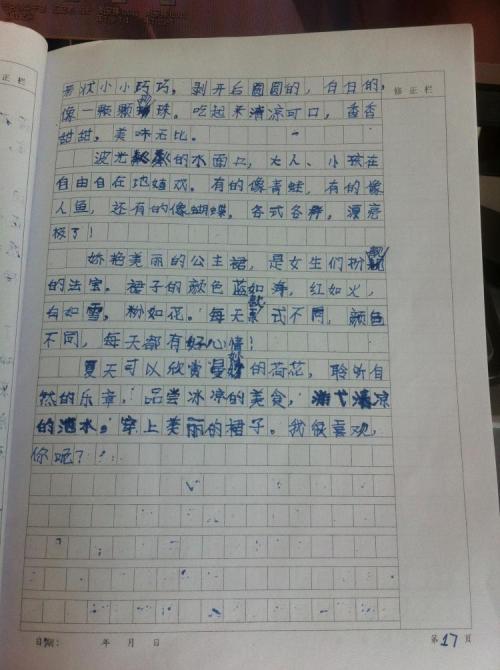 正栏
修正栏
形状小小巧巧，剥开后圆圆的，白白的，
像一颗颗珍珠。吃起来清凉可口，香香
甜甜，美味无比。
波光粼粼的水面上，大人、小孩在
自由自在地嬉戏。有的像青蛙，有的像
人鱼，还有的像蝴蝶，各式各样，漂亮
极了！
娇艳美丽的公主裙，是女生们扮靓
的法宝。裙子的颜色蓝如海，红如火，
白如雪，粉如花。每天款式不同，颜色
不同，每天都有好心情！
夏天可以欣赏曼妙的荷花，聆听自
然的乐章，品尝冰凉的美食，游弋清凉
的池水，穿上美丽的裙子。我很喜欢，
你呢？
日期： 年 月 日
第17页